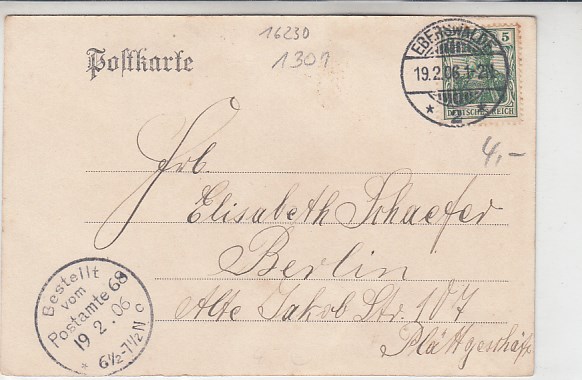 16230
1309
Postkarte
EBERSWALDE
19.2.06.1-2N.
* 2 *
5
DEUTSCHES REICH
4,-
Frl.
Elisabeth Schaefer
Berlin
Alte Jakob Str. 107
Plättgeschäft
Bestellt
vom
Postamte 68
19 2. 06
* 6½-7½ N c